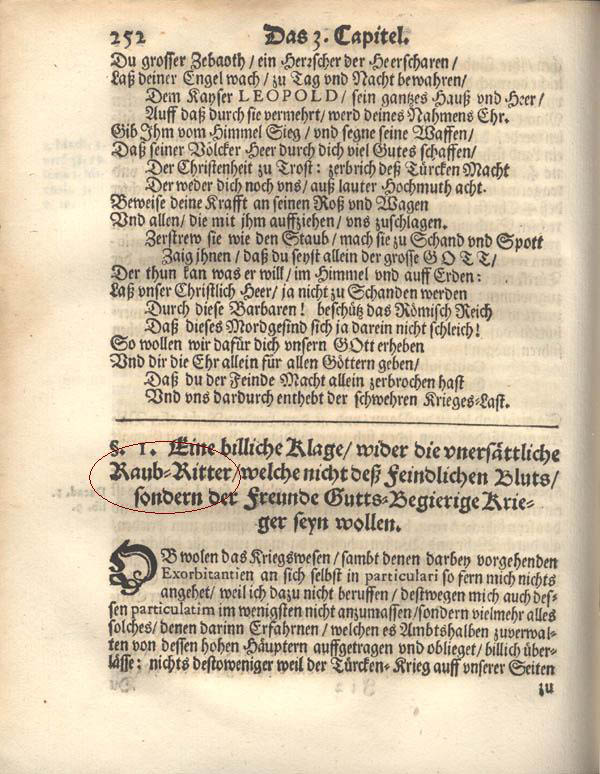 252 Das 3. Capitel.
Du grosser Zebaoth / ein Herrscher der Heerscharen /
Laß deiner Engel wach / zu Tag vnd Nacht bewahren /
Dem Kayser LEOPOLD / sein gantzes Hauß vnd Heer /
Auff daß durch sie vermehrt / werd deines Nahmens Ehr.
Gib Ihm vom Himmel Sieg / vnd segne seine Waffen /
Daß seiner Völcker Heer durch dich viel Gutes schaffen /
Der Christenheit zu Trost: zerbrich deß Türcken Macht
Der weder dich noch vns / auß lauter Hochmuth acht.
Beweise deine Krafft an seinen Roß vnd Wagen
Vnd allen / die mit jhm auffziehen / vns zuschlagen.
Zerstrew sie wie den Staub / mach sie zu Schand vnd Spott
Zaig jhnen / daß du seyst allein der grosse GOTT /
Der thun kan was er will / im Himmel vnd auff Erden:
Laß vnser Christlich Heer / ja nicht zu Schanden werden
Durch diese Barbaren! beschütz das Römisch Reich
Daß dieses Mordgesind sich ja darein nicht schleich!
So wollen wir dafür dich vnsern GOtt erheben
Vnd dir die Ehr allein für allen Göttern geben /
Daß du der Feinde Macht allein zerbrochen hast
Vnd vns dardurch enthebt der schwehren Krieges-Last.
§. 1. Eine billiche Klage / wider die vnersättliche
Raub-Ritter / welche nicht deß Feindlichen Bluts /
sondern der Freunde Gutts-Begierige Krie-
ger seyn wollen.
OB wolen das Kriegswesen / sambt denen darbey vorgehenden
Exorbitantien an sich selbst in particulari so fern mich nichts
angehet / weil ich dazu nicht beruffen / destwegen mich auch des-
sen particulatim im wenigsten nicht anzumassen / sondern vielmehr alles
solches / denen darinn Erfahrnen / welchen es Ambtshalben zuverwal-
ten von dessen hohen Häuptern auffgetragen vnd oblieget / billich über-
lässe: nichts destoweniger weil der Türcken-Krieg auff vnserer Seiten
zu